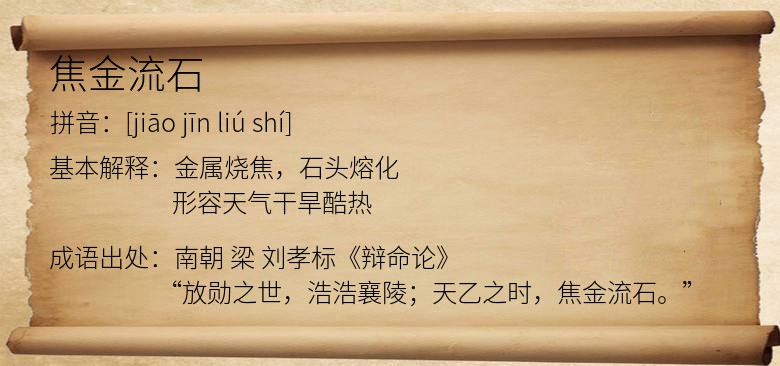 焦金流石
拼音：[jiāo jīn liú shí]
基本解释：金属烧焦，石头熔化
形容天气干旱酷热
成语出处：南朝 梁 刘孝标《辩命论》
“放勋之世，浩浩襄陵；天乙之时，焦金流石。”